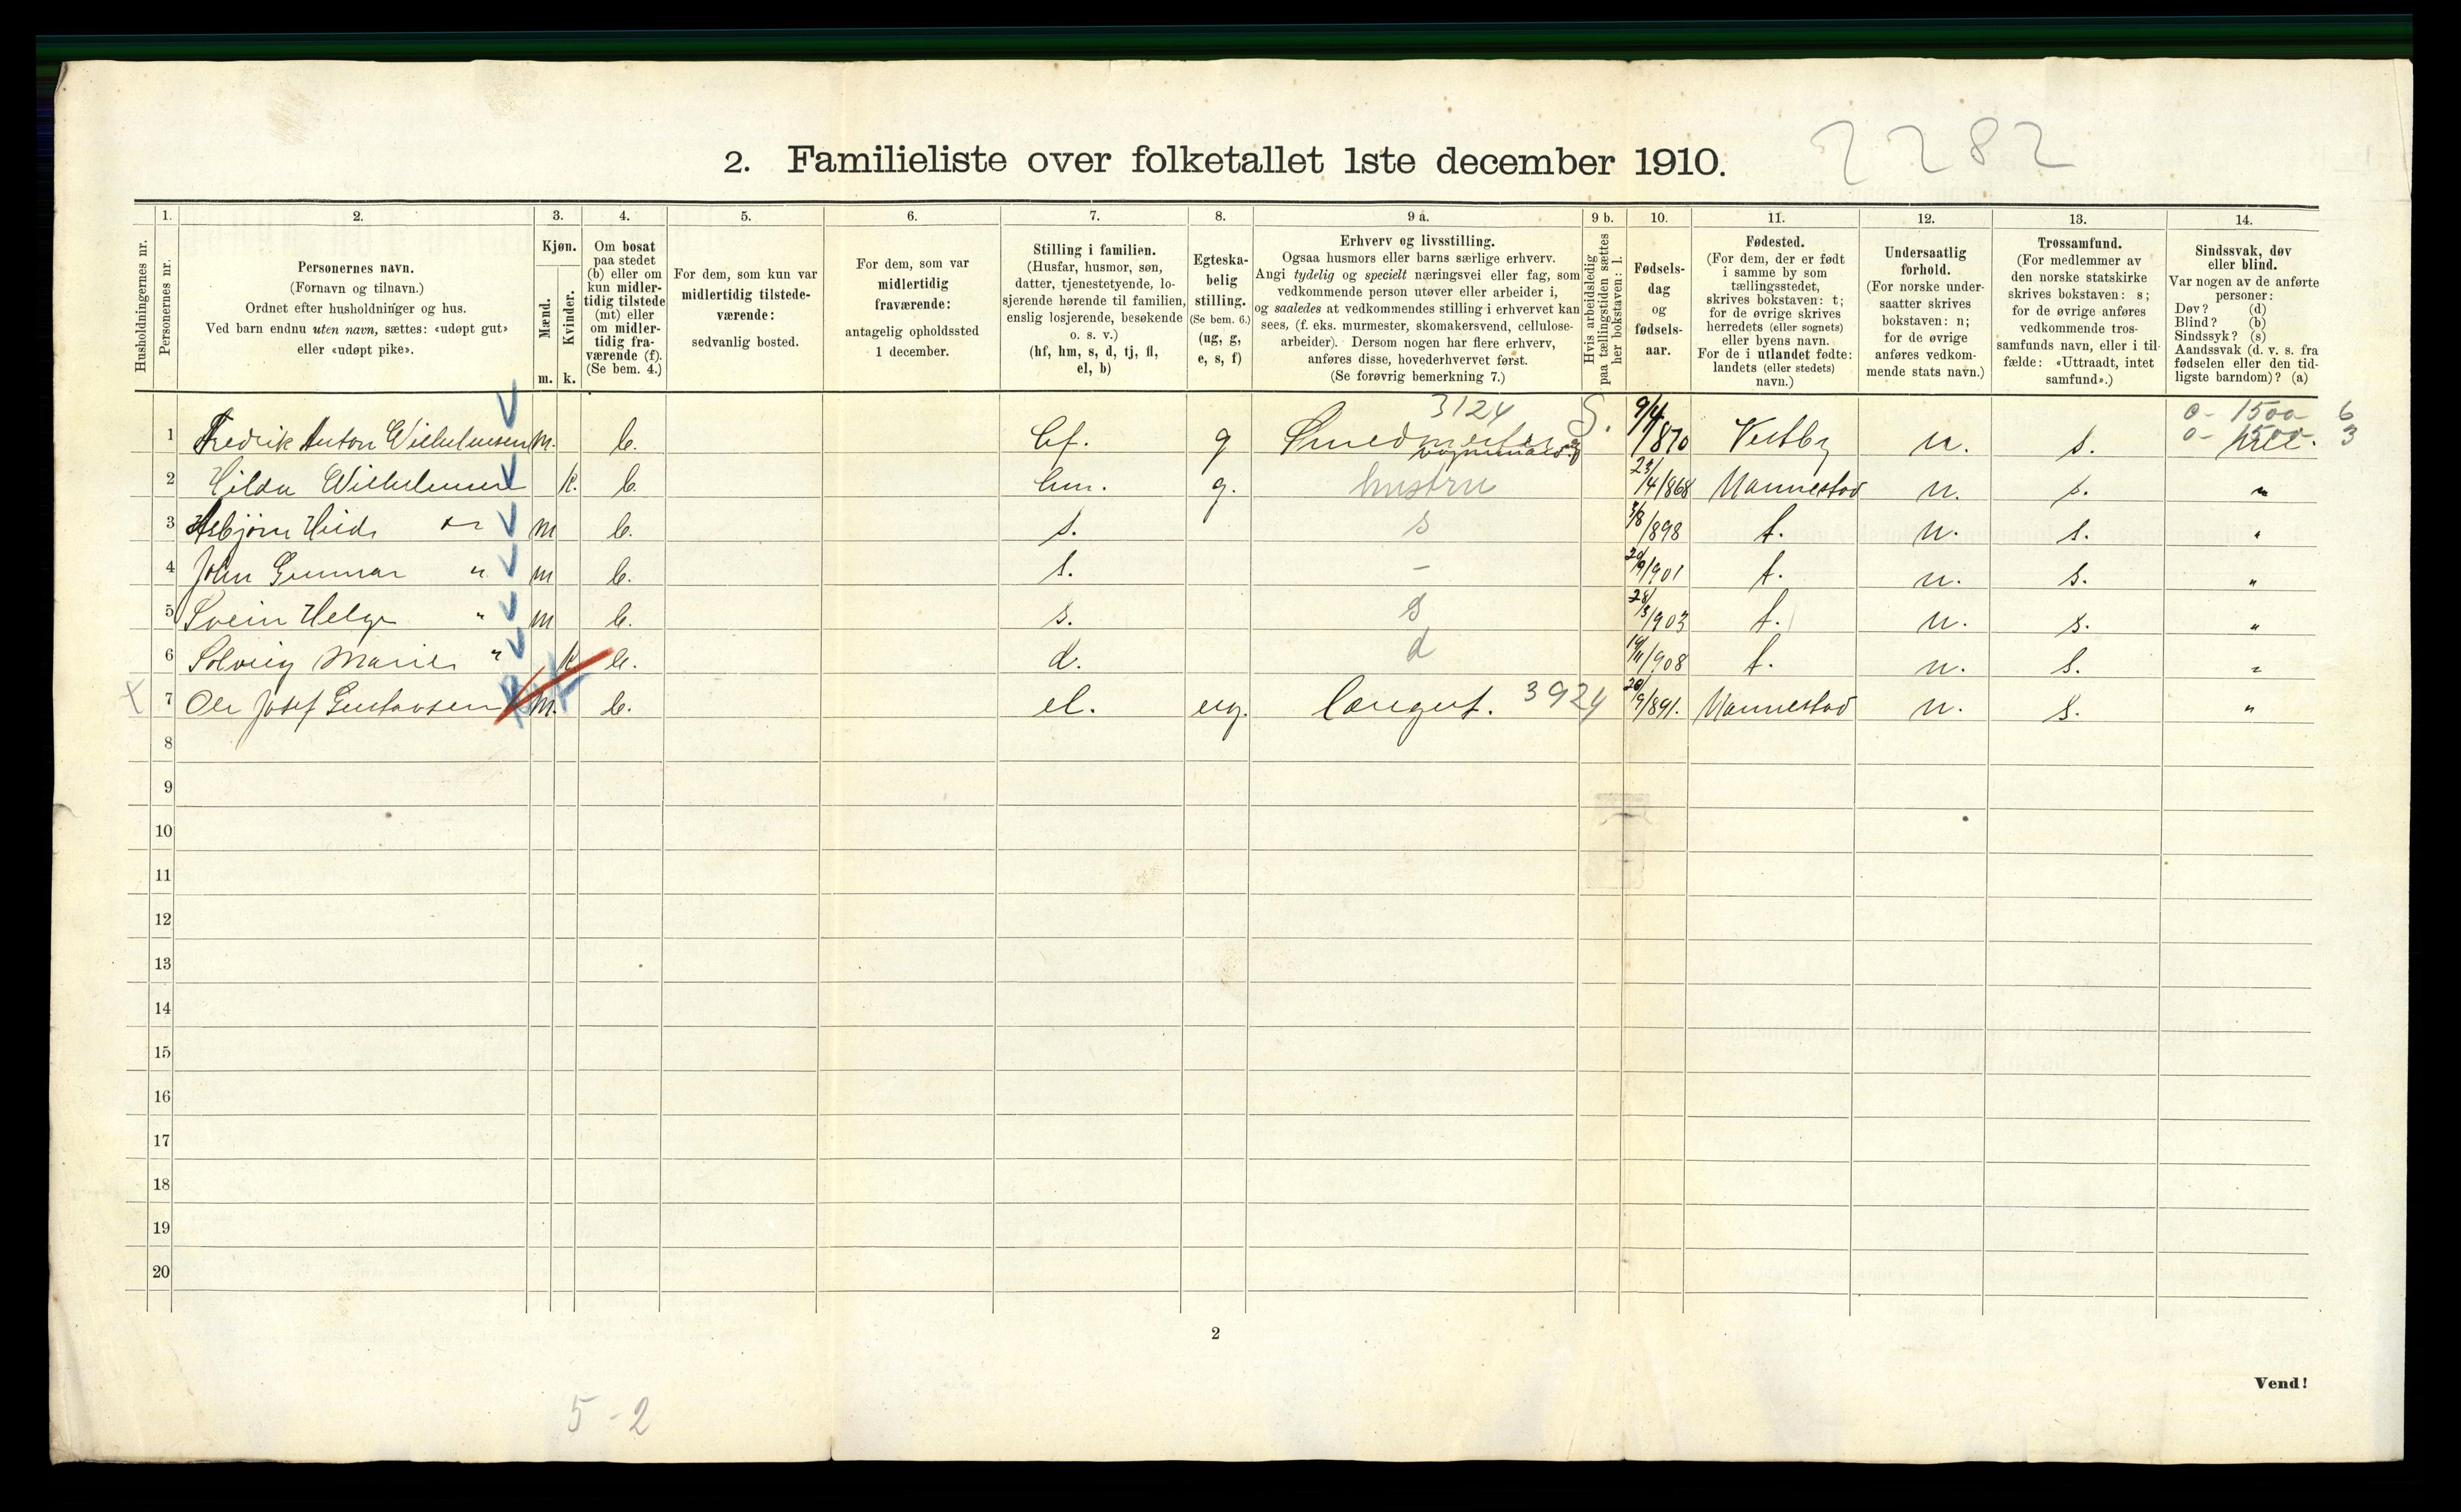 2. Familieliste over folketallet 1ste december 1910.
2282
Husholdningernes nr.
1.
Personernes nr.
2.
Personernes navn.
(Fornavn og tilnavn.)
Ordnet efter husholdninger og hus.
Ved barn endnu uten navn, sættes: «udøpt gut»
eller «udøpt pike».
3.
Kjøn.
Mænd.
Kvinder.
m. k.
4.
Om bosat
paa stedet
(b) eller om
kun midler-
tidig tilstede
(mt) eller
om midler-
tidig fra-
værende (f).
(Se bem. 4.)
5.
For dem, som kun var
midlertidig tilstede-
værende:
sedvanlig bosted.
6.
For dem, som var
midlertidig
fraværende:
antagelig opholdssted
1 december.
7.
Stilling i familien.
(Husfar, husmor, søn,
datter, tjenestetyende, lo-
sjerende hørende til familien,
enslig losjerende, besøkende
o. s. v.)
(hf, hm, s, d, tj, fl,
el, b)
8.
Egteska-
belig
stilling.
(Se bem. 6.)
(ug, g,
e, s, f)
9 a.
Erhverv og livsstilling.
Ogsaa husmors eller barns særlige erhverv.
Angi tydelig og specielt næringsvei eller fag, som
vedkommende person utøver eller arbeider i,
og saaledes at vedkommendes stilling i erhvervet kan
sees, (f. eks. murmester, skomakersvend, cellulose-
arbeider). Dersom nogen har flere erhverv,
anføres disse, hovederhvervet først.
(Se forøvrig bemerkning 7.)
9 b.
Hvis arbeidsledig
paa tællingstiden sættes
her bokstaven: l.
10.
Fødsels-
dag
og
fødsels-
aar.
11.
Fødested.
(For dem, der er født
i samme by som
tællingsstedet,
skrives bokstaven: t;
for de øvrige skrives
herredets (eller sognets)
eller byens navn.
For de i utlandet fødte:
landets (eller stedets)
navn.)
12.
Undersaatlig
forhold.
(For norske under-
saatter skrives
bokstaven: n;
for de øvrige
anføres vedkom-
mende stats navn.)
13.
Trossamfund.
(For medlemmer av
den norske statskirke
skrives bokstaven: s;
for de øvrige anføres
vedkommende tros-
samfunds navn, eller i til-
fælde: «Uttraadt, intet
samfund».)
14.
Sindssvak, døv
eller blind.
Var nogen av de anførte
personer:
Døv? (d)
Blind? (b)
Sindssyk? (s)
Aandssvak (d. v. s. fra
fødselen eller den tid-
ligste barndom)? (a)
3124 S. 0- 1500 6
0- 1500 3
1 Fredrik Anton Wilhelmsen m. b. hf. g Smedmester 9/4/870 Vestby n. s.
2 Hilda Wilhelmsen k. b. hm. g. hustru 23/4/868 Vannestad n. s. "
3 m b. s. s 3/8/898 t. n. s. "
4 John Gunnar " m b. s. - 20/9/901 t. n. s. "
5 Svein Helge " m b. s. s 28/3/903 t. n. s. "
6 Solveig Marie " k b. d. d 19/11/908 t. n. s. "
X 7 Ole Josef Gustavsen m. b. el. ug. læregut. 3924 20/9/891. Vannestad n. s. "
8
9
10
11
12
13
14
15
16
17
18
19
20
2
Vend!
5-2